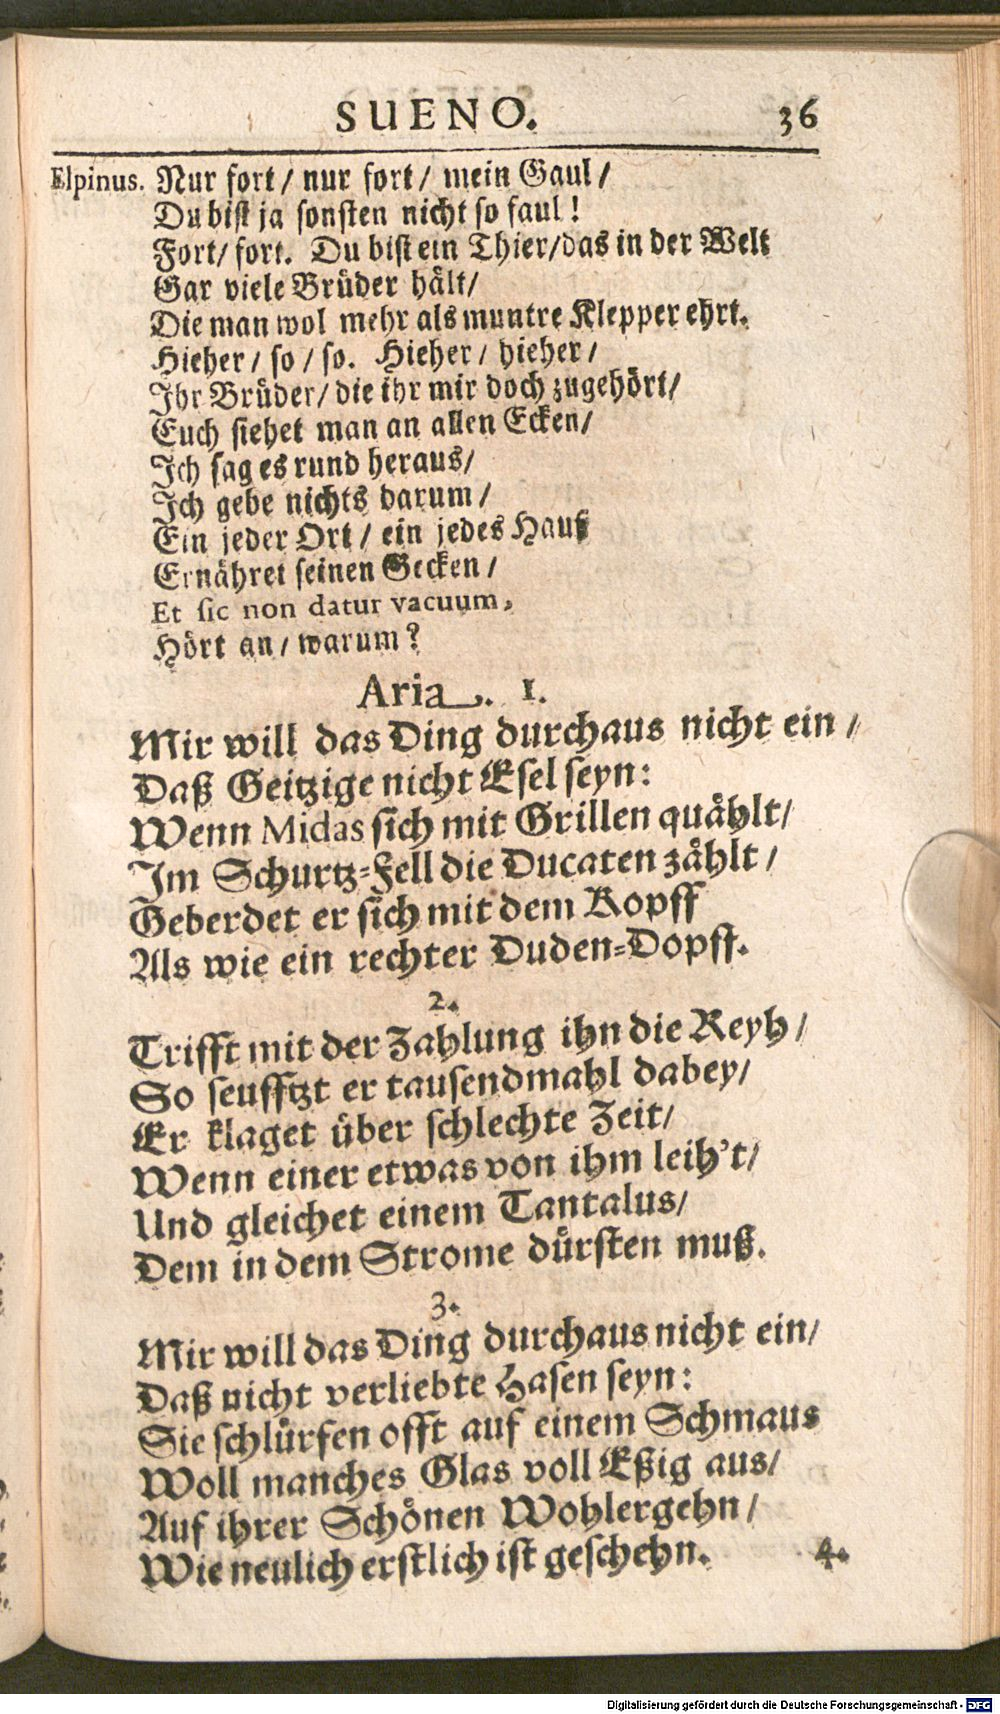 SUENO. 36
Elpinus. Nur fort/ nur fort/ mein Gaul/
Du bist ja sonsten nicht so faul!
Fort/ fort. Du bist ein Thier/das in der Welt
Gar viele Brüder hält/
Die man wol mehr als muntre Klepper ehrt.
Hieher/ so/ so. Hieher/ hieher/
Ihr Brüder/ die ihr mir doch zugehört/
Euch siehet man an allen Ecken/
Ich sag es rund heraus/
Ich gebe nichts darum/
Ein jeder Ort/ ein jedes Hauß
Ernähret seinen Gecken/
Et sic non datur vacuum,
Hört an/ warum?
Aria. 1.
Mir will das Ding durchaus nicht ein/
Daß Geitzige nicht Esel seyn:
Wenn Midas sich mit Grillen quählt/
Im Schurtz-Fell die Ducaten zählt/
Geberdet er sich mit dem Kopff
Als wie ein rechter Duden-Dopff.
2.
Trifft mit der Zahlung ihn die Reyh/
So seufftzt er tausendmahl dabey/
Er klaget über schlechte Zeit/
Wenn einer etwas von ihm leih't/
Und gleichet einem Tantalus/
Dem in dem Strome dürsten muß.
3.
Mir will das Ding durchaus nicht ein/
Daß nicht verliebte Hasen seyn:
Sie schlürfen offt auf einem Schmaus
Woll manches Glas voll Eßig aus/
Auf ihrer Schönen Wohlergehn/
Wie neulich erstlich ist geschehn. 4.
Digitalisierung gefördert durch die Deutsche Forschungsgemeinschaft - DFG